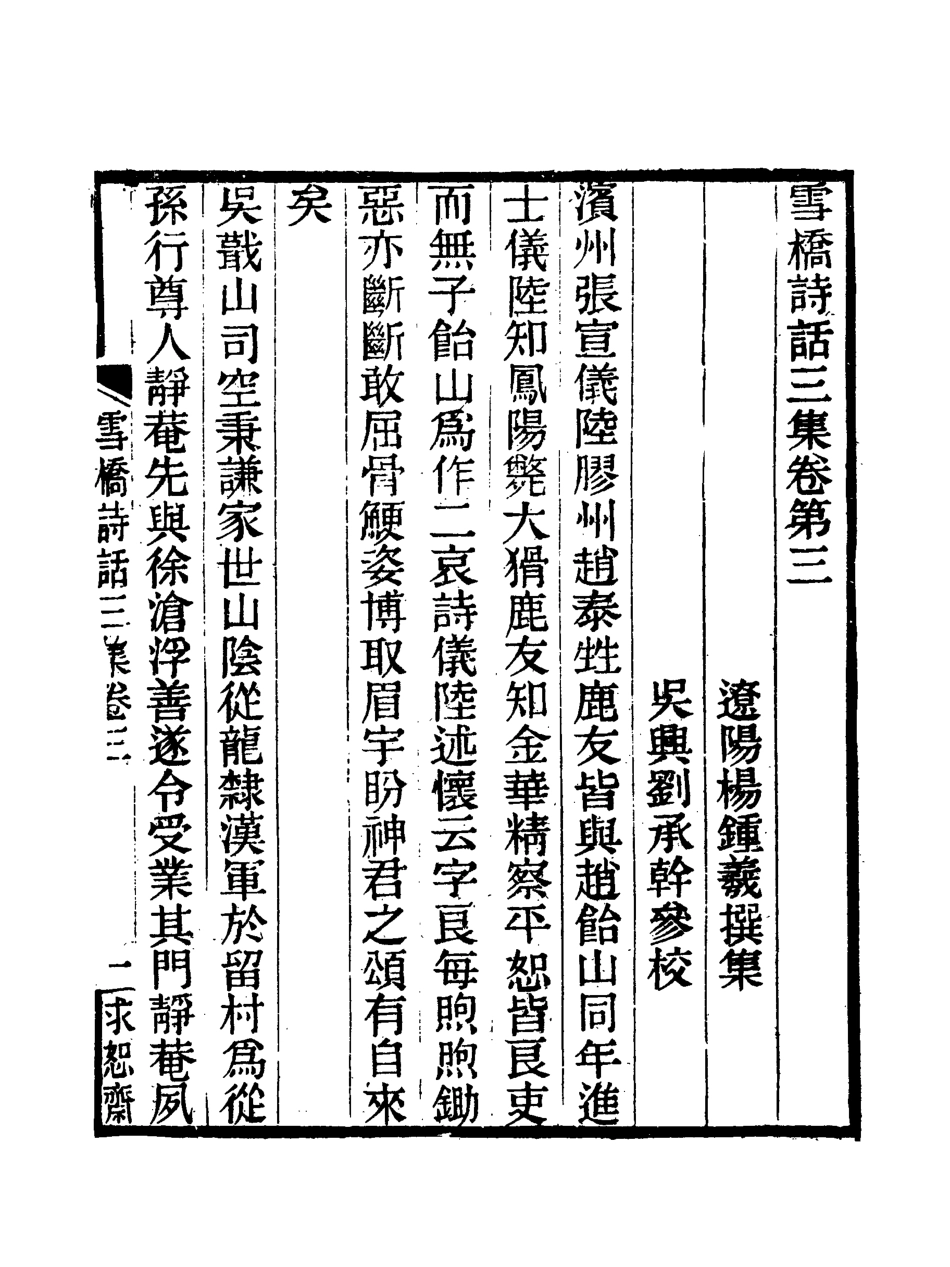 雪橋詩話三集卷第三
遼陽楊鍾羲撰集
吳興劉承幹參校
濱州張宣儀陸膠州趙泰甡鹿友皆與趙飴山同年進
士儀陸知鳳陽斃大猾鹿友知金華精察平恕皆良吏
而無子飴山爲作二哀詩儀陸述懷云字良每煦煦鋤
惡亦斷斷敢屈骨鯁姿博取眉宇盼神君之頌有自來
矣
吳戢山司空秉謙家世山陰從龍隸漢軍於留村爲從
孫行尊人靜菴先與徐滄浮善遂令受業其門靜菴夙
雪橋詩話三集卷三
求恕齋